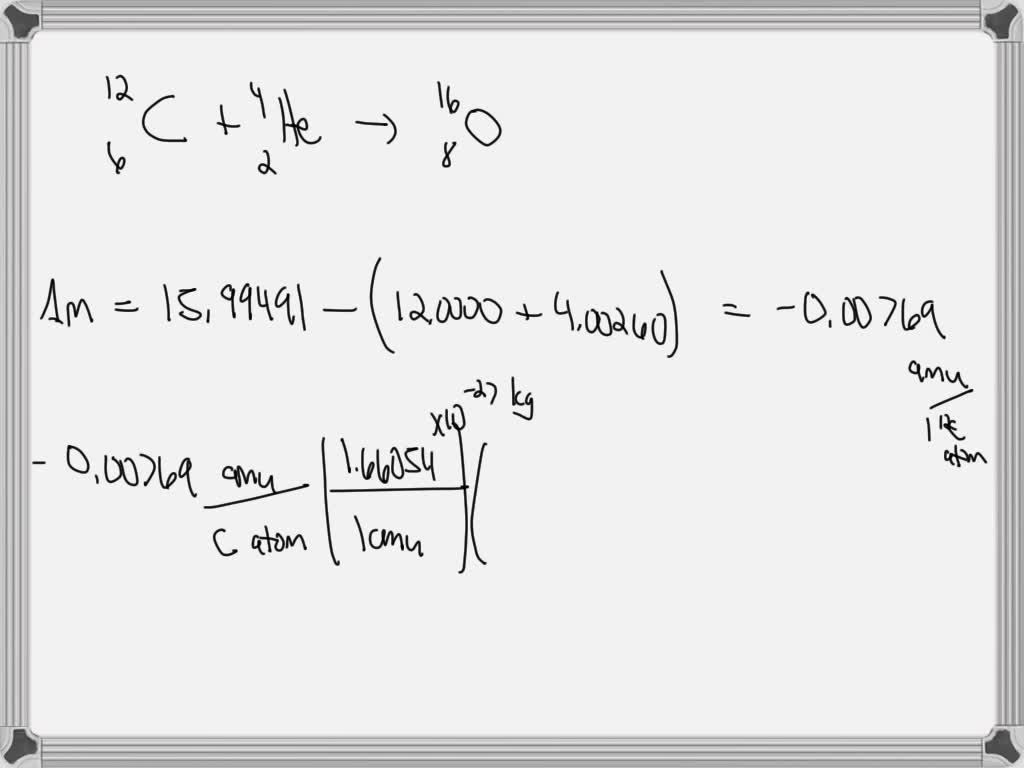 ¹²₆C + ⁴₂He → ¹⁶₈O
Δm = 15.99491 − (12.0000 + 4.00260) = −0.00769
amu / 1 ¹²C atom
− 0.00769 amu / C atom | 1.66054 ×10⁻²⁷ kg / 1 amu | (